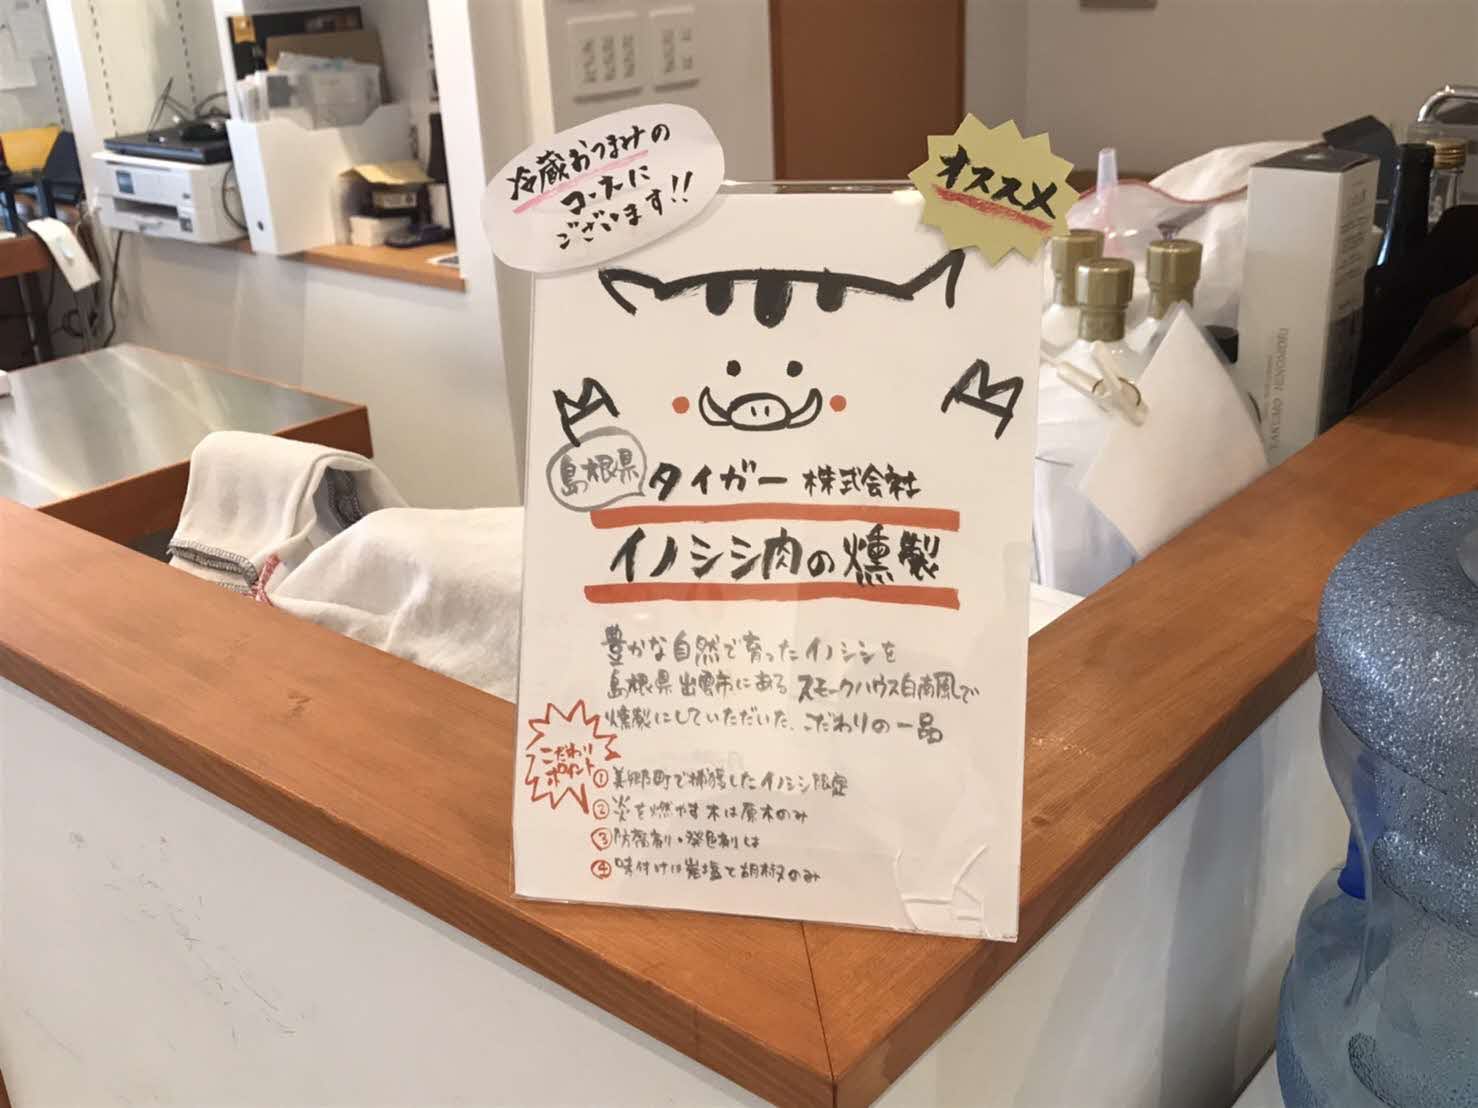 冷蔵おつまみの
コーナーに
ございます!!
オススメ
島根県
タイガー 株式会社
イノシシ肉の燻製
豊かな自然で育ったイノシシを
島根県出雲市にある スモークハウス白南風で
燻製にしていただいた、こだわりの一品
こだわり
ポイント
① 美郷町で捕獲したイノシシ限定
② 炎を燃やす木は原木のみ
③ 防腐剤・発色剤は
④ 味付けは岩塩と胡椒のみ